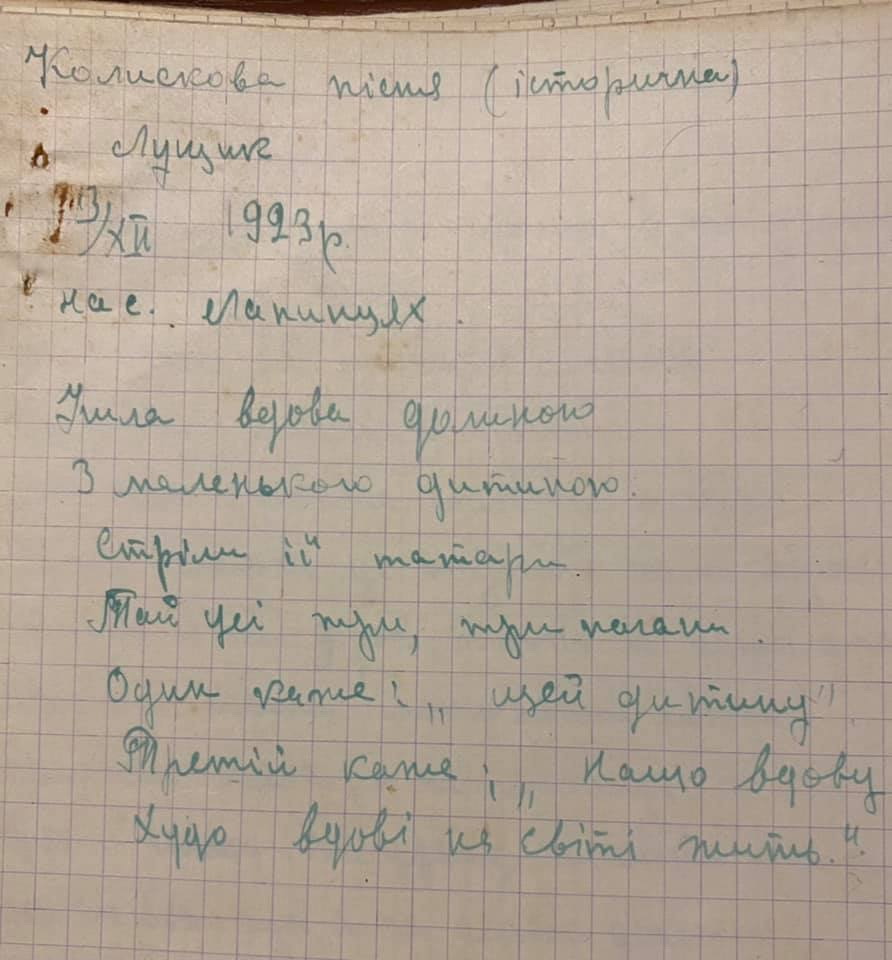 Колискова пісня (історична)
Лущик
13/XII 1923р.
на с. Лапинцях.
Ишла вдова долиною
З маленькою дитиною.
Стріли її татари
Тай усі три, три погани.
Один каже: „ щей дитину"
Третій каже: „ нащо вдову
Худо вдові на світі жить."